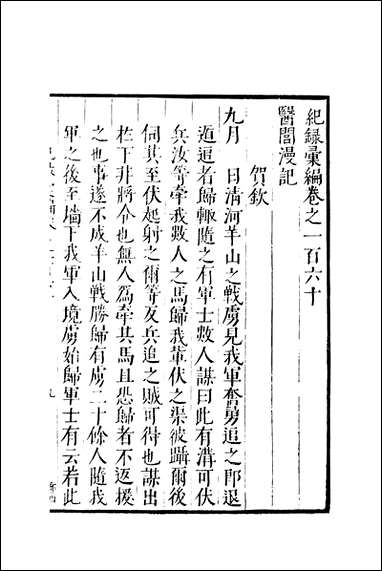 紀録彙編卷之一百六十
醫閭漫記
賀欽
九月　日清河羊山之戰虜見我軍奮勇追之卽退
遁追者歸輒隨之有軍士數人謀曰此有溝可伏
兵汝等牽我數人之馬歸我輩伏之渠彼躡爾後
伺其至伏起射之爾等反兵追之賊可得也謀出
於下非將令也無人爲牽其馬且恐歸者不返援
之也事遂不成羊山戰勝歸有虜二十餘人隨我
軍之後至墻下我軍入境虜始歸軍士有云若此